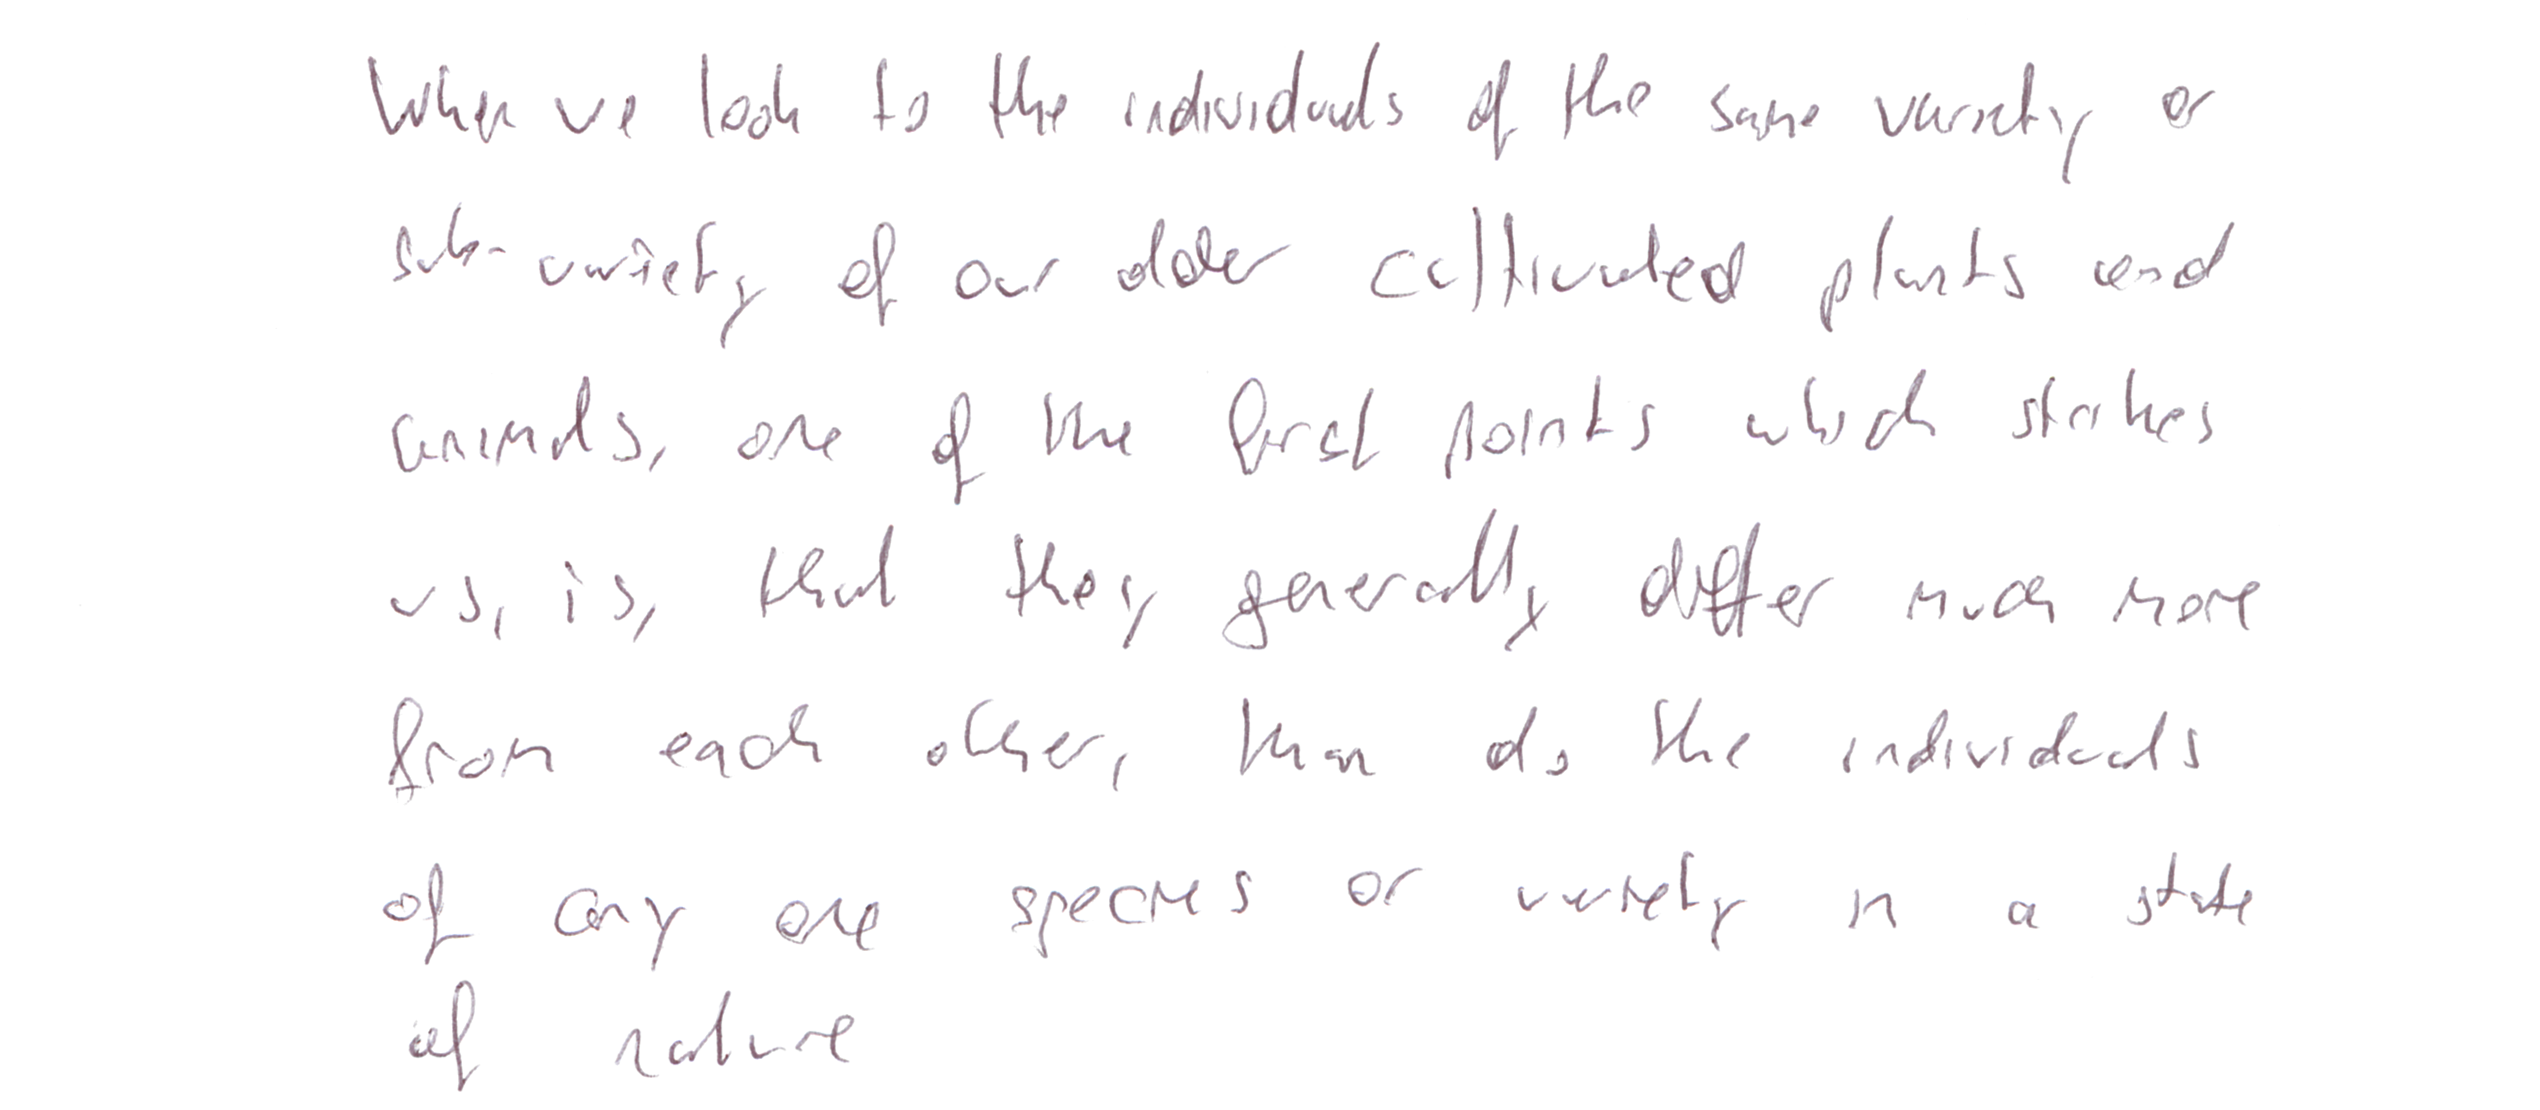 When we look to the individuals of the same variety or
sub-variety of our older cultivated plants and
animals, one of the first points which strikes
us, is, that they generally differ much more
from each other, than do the individuals
of any one species or variety in a state
of nature